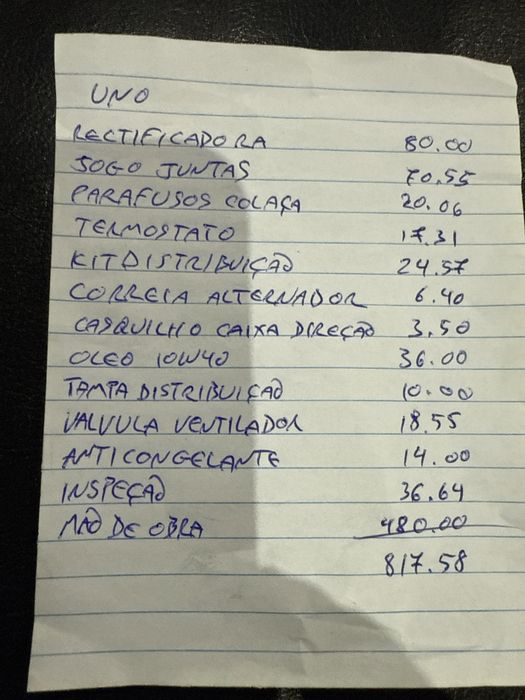 UNO
RECTIFICADORA 80.00
JOGO JUNTAS 70.55
PARAFUSOS COLAÇA 20.06
TERMOSTATO 17.31
KIT DISTRIBUIÇÃO 24.57
CORREIA ALTERNADOR 6.40
CASQUILHO CAIXA DIREÇÃO 3.50
OLEO 10W40 36.00
TAMPA DISTRIBUIÇÃO 10.00
VALVULA VENTILADOR 18.55
ANTICONGELANTE 14.00
INSPEÇÃO 36.64
MÃO DE OBRA 480.00
817.58